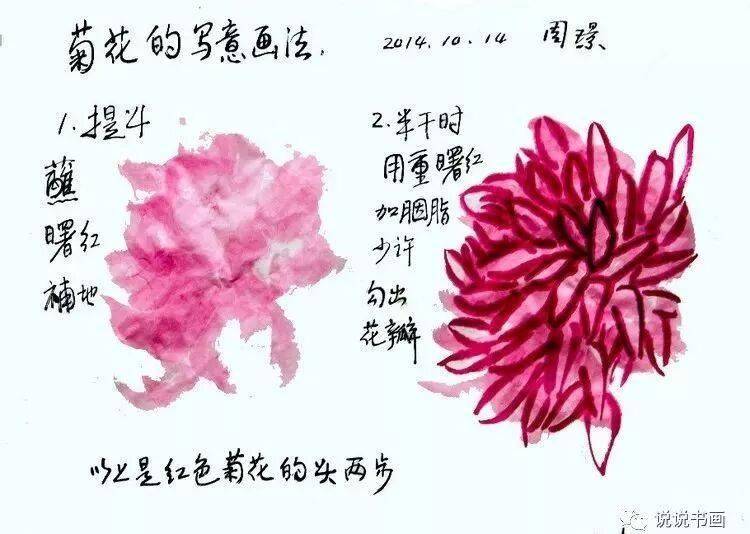 菊花的写意画法.
2014.10.14 周璟
1.提斗
蘸
曙红
補地
2.半干时
用重曙红
加胭脂
少许
勾出
花瓣
以上是红色菊花的头两步
说说书画